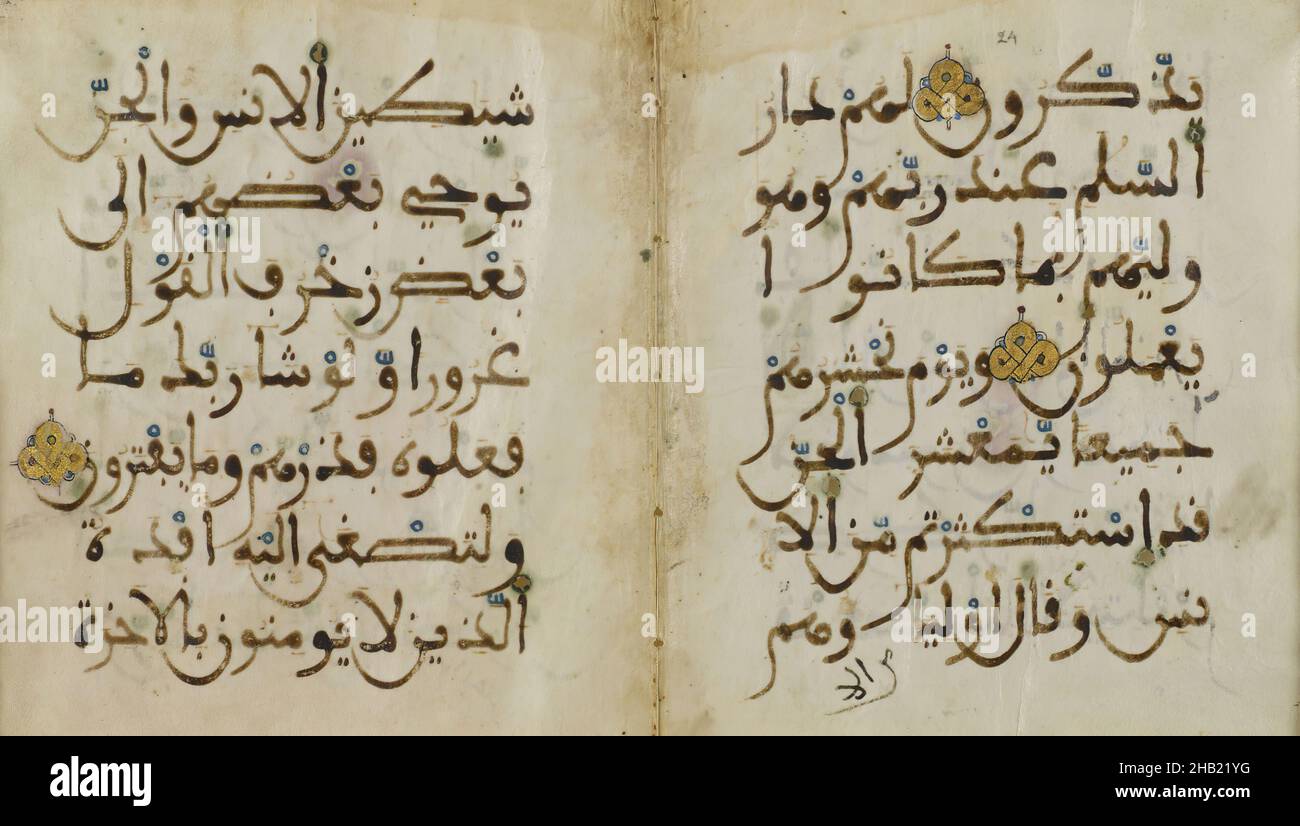 24
يذكرون لهم دار
السلم عند ربهم وهو
وليهم بما كانوا
يعملون ويوم نحشرهم
جميعا يمعشر الجن
قد استكثرتم من الا
نس وقال اوليا وهم
شيطين الانس والجن
يوحي بعضهم الى
بعض زخرف القول
غرورا ولو شا ربك ما
فعلوه فذرهم وما يفترون
ولتصغى اليه افدة
الذين لا يومنون بالاخرة
alamy
alamy
Image ID: 2HB21YG
www.alamy.com